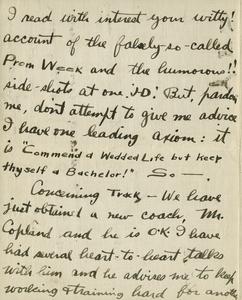 I read with interest your witty!
account of the falsely-so-called
Prom Week and the humorous!!
side-shots at one "J-D! But, pardon
me, don't attempt to give me advice
I have one leading axiom: it
is "Commend a Wedded Life but keep
thyself a Bachelor!" So —.
Concerning Track — We have
just obtained a new coach, Mr.
Copland and he is O.K. I have
had several heart-to-heart talks
with him and he advises me to keep
working & training hard for another